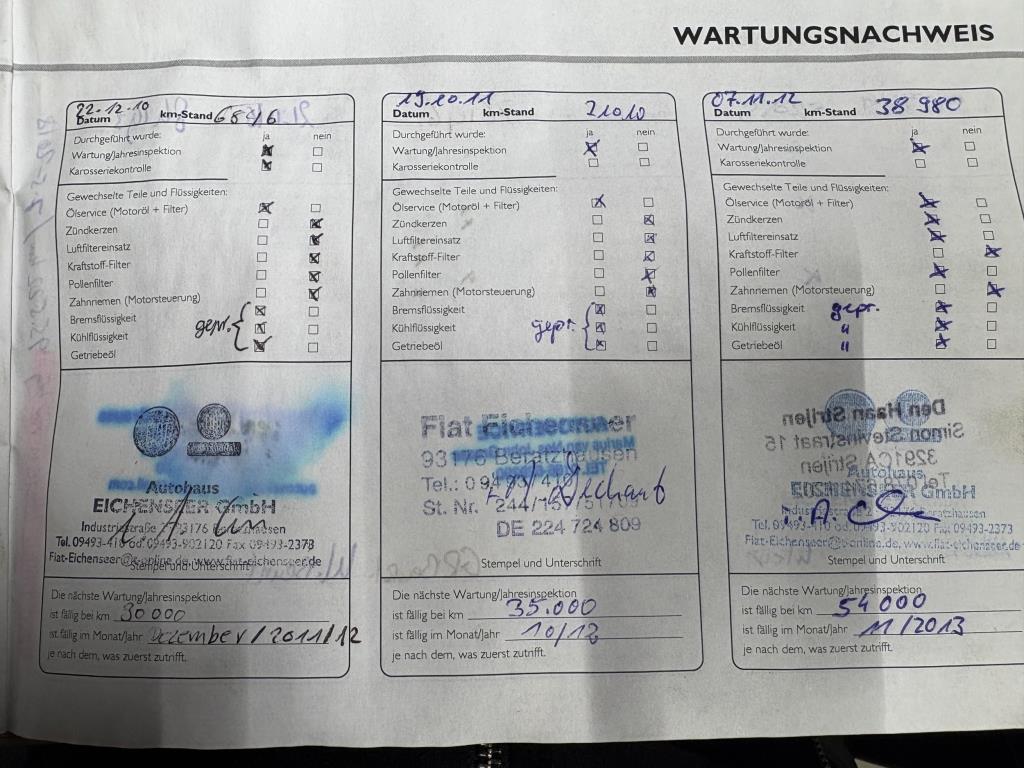 WARTUNGSNACHWEIS
22.12.10
Datum km-Stand
Durchgeführt wurde: ja nein
Wartung/Jahresinspektion
Karosseriekontrolle
Gewechselte Teile und Flüssigkeiten:
Ölservice (Motoröl + Filter)
Zündkerzen
Luftfiltereinsatz
Kraftstoff-Filter
Pollenfilter
Zahnriemen (Motorsteuerung)
Bremsflüssigkeit
gepr.
Kühlflüssigkeit
Getriebeöl
Autohaus
EICHENSEER GmbH
Industriestraße
Fax 09493-2373
Stempel und Unterschrift
Die nächste Wartung/Jahresinspektion
ist fällig bei km 30 000
ist fällig im Monat/Jahr Dezember/2011/12
je nach dem, was zuerst zutrifft.
19.10.11
Datum km-Stand 21010
Durchgeführt wurde: ja nein
Wartung/Jahresinspektion
Karosseriekontrolle
Gewechselte Teile und Flüssigkeiten:
Ölservice (Motoröl + Filter)
Zündkerzen
Luftfiltereinsatz
Kraftstoff-Filter
Pollenfilter
Zahnriemen (Motorsteuerung)
Bremsflüssigkeit
gepr.
Kühlflüssigkeit
Getriebeöl
Fiat Eichenseer
93176 Beratzhausen
St. Nr.
DE 224 724 809
Stempel und Unterschrift
Die nächste Wartung/Jahresinspektion
ist fällig bei km 35.000
ist fällig im Monat/Jahr 10/12
je nach dem, was zuerst zutrifft.
07.11.12
Datum km-Stand 38 980
Durchgeführt wurde: ja nein
Wartung/Jahresinspektion
Karosseriekontrolle
Gewechselte Teile und Flüssigkeiten:
Ölservice (Motoröl + Filter)
Zündkerzen
Luftfiltereinsatz
Kraftstoff-Filter
Pollenfilter
Zahnriemen (Motorsteuerung)
Bremsflüssigkeit gepr.
Kühlflüssigkeit "
Getriebeöl "
Autohaus
EICHENSEER GmbH
Fax 09493-2373
Stempel und Unterschrift
Die nächste Wartung/Jahresinspektion
ist fällig bei km 54 000
ist fällig im Monat/Jahr 11/2013
je nach dem, was zuerst zutrifft.